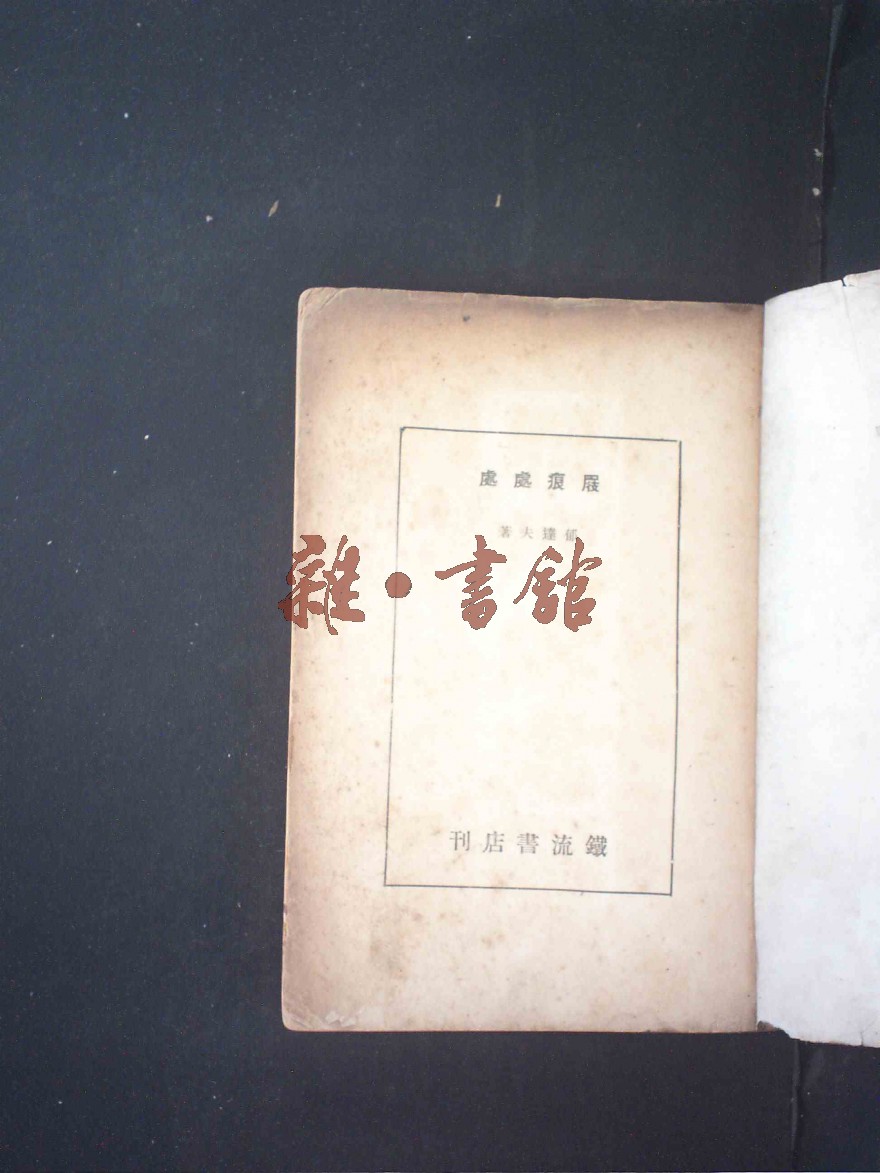 屐痕處處
郁達夫著
雜·書館
鐵流書店刊